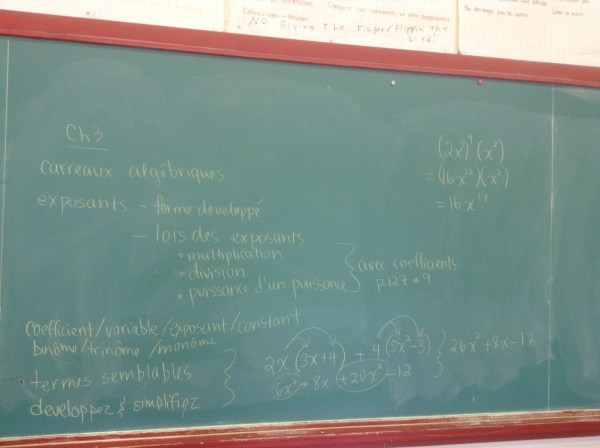 No Giving The Finger/Flippin The bird!
Ch3
carreaux algébriques
exposants - forme developpé
- lois des exposants
• multiplication
• division
• puissance d'un puissance
} avec coefficients
p.127 # 9
(2x³)⁴(x²)
= (16x¹²)(x²)
= 16x¹⁴
coefficient/variable/exposant/constant
binôme/trinôme/monôme
termes semblables
developpez & simplifiez
2x(3x+4) + 4(5x²-3)
6x² + 8x + 20x² - 12
} 26x² + 8x - 12